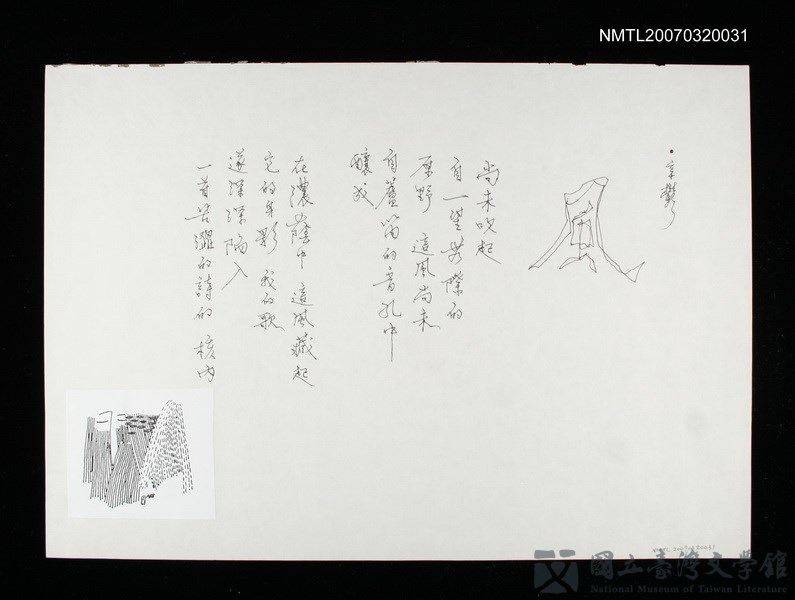 NMTL20070320031
•辛鬱
風
尚未吹起
自一望無際的
原野 這風尚未
自蘆笛的音孔中
釀成
在濃蔭中 這風藏起
它的身影 我的歌
遂深深陷入
一首苦澀的詩的 核內
國立臺灣文學館
National Museum of Taiwan Literature